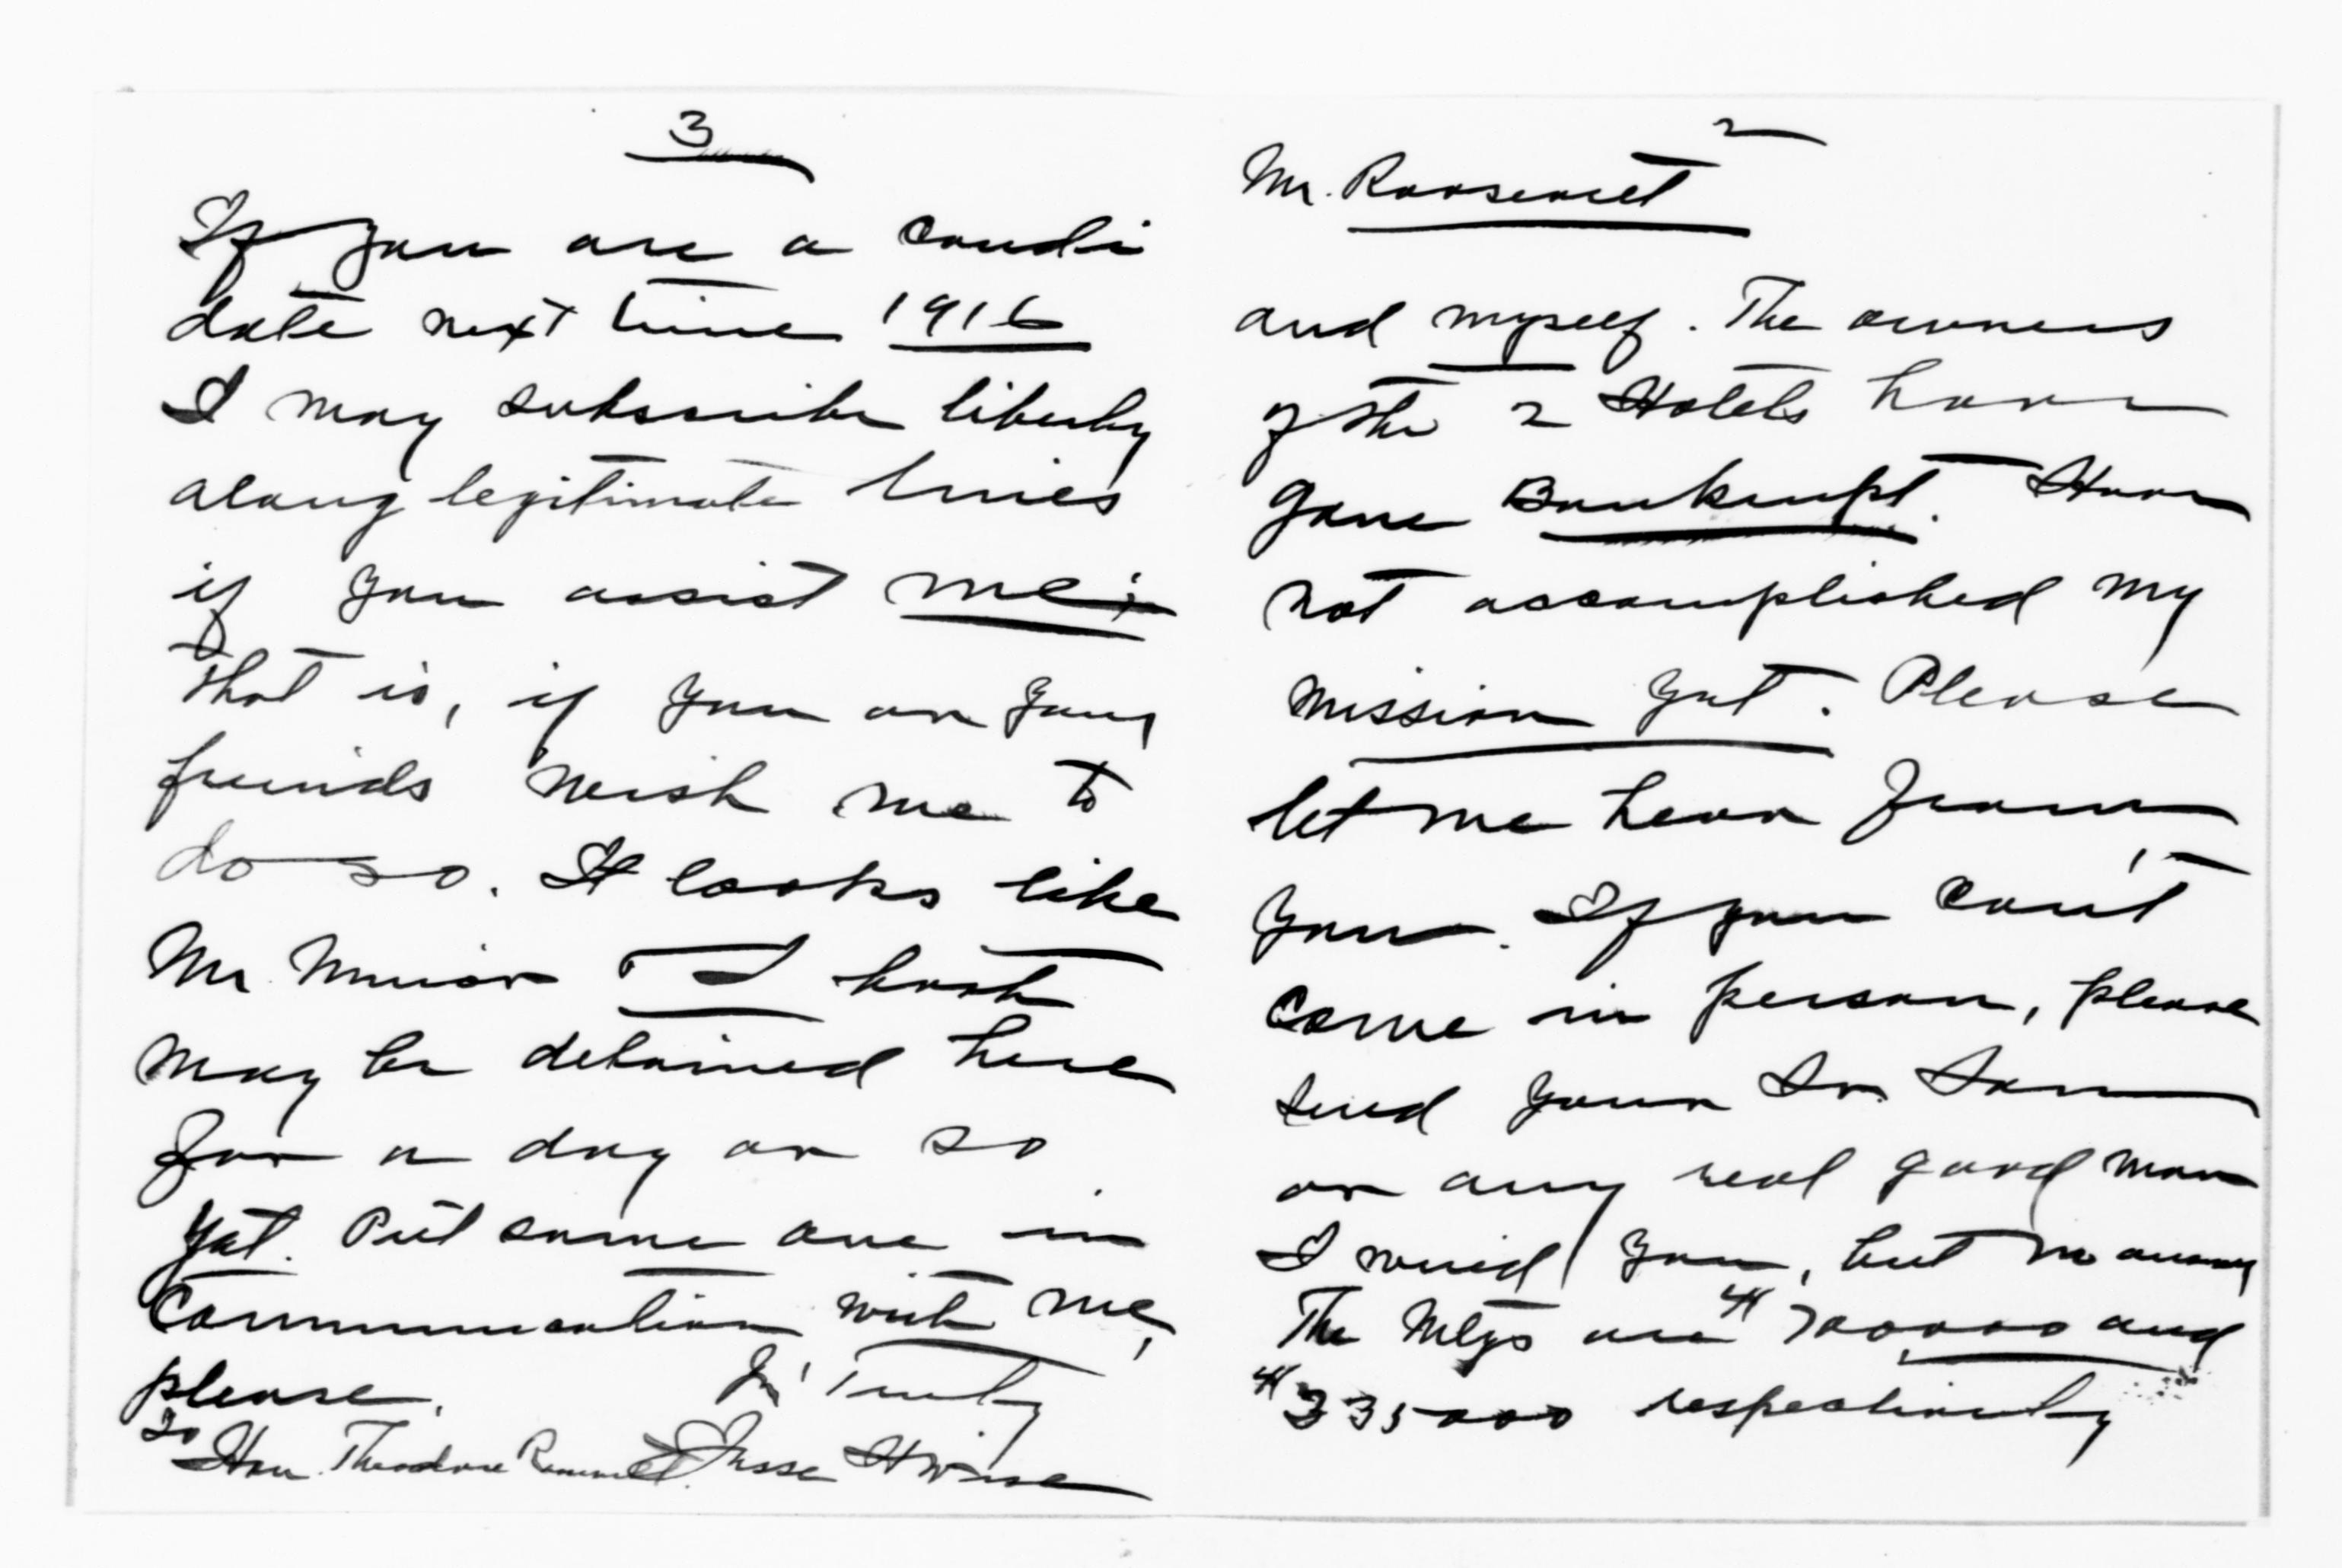 2
Mr. Roosevelt
and myself. The owners
of the 2 Hotels have
gone Bankrupt. Have
not accomplished my
mission yet. Please
let me hear from
you. If you can't
come in person, please
send your
or any real good man
I need you, but no money
The Mtgs are $700000 and
$335000 respectively
3
If you are a candi
date next time 1916
I may subscribe liberly
along legitimate lines
if you assist me;
that is, if you or your
friends wish me to
do so. It looks like
Mr I both
may be detained here
for a day or so
yet. Put some one in
Communication with me,
please. Yrs' Truly
To Hon. Theodore Roosevelt. Jesse